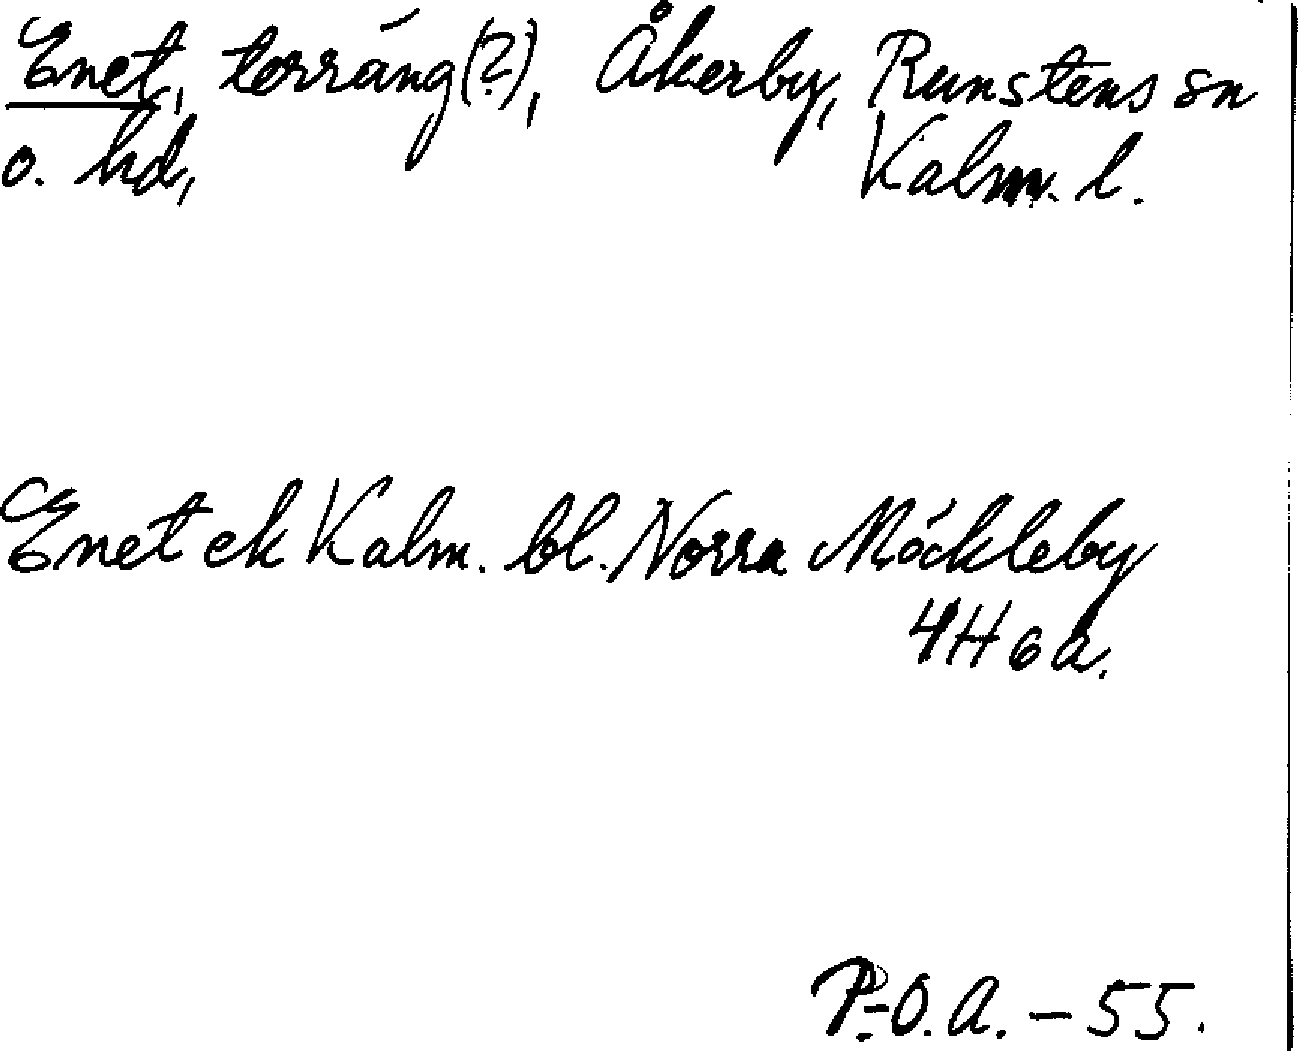 Enet, terräng(?), Åkerby, Runstens sn
o. hd, Kalm. l.
Enet ek Kalm. bl. Norra Möckleby
4H 6 a.
P.-O. A. – 55.